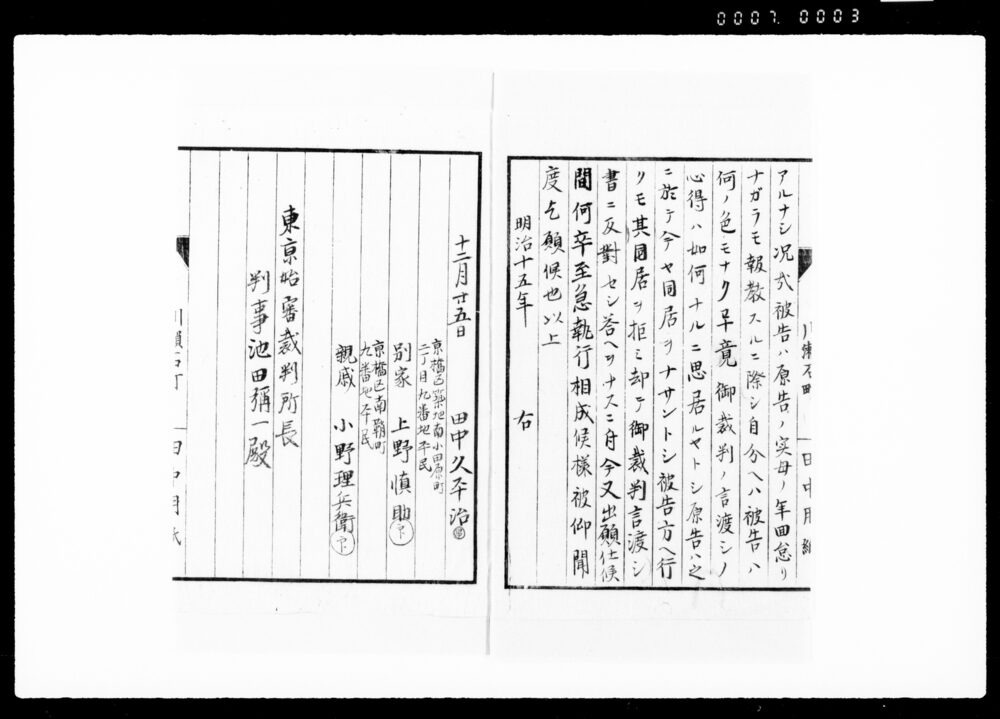 0007 0003
アルナシ況弐被告ハ原告ノ実母ノ年回怠リ
ナガラモ報教スルニ際シ自分ヘハ被告ハ
何ノ色モナク早竟御裁判ノ言渡シノ
心得ハ如何ナルニ思居ルヤトシ原告ハ之
ニ於テ今ヤ同居ヲナサントシ被告方ヘ行
リモ其同居ヲ拒ミ却テ御裁判言渡シ
書ニ反對セシ答ヘヲナスニ付今又出願仕候
間何卒至急執行相成候様被仰聞
度乞願候也以上
明治十五年 右
十二月廿五日 田中久平治
京橋区築地南小田原町
二丁目九番地平民
別家 上野慎助
京橋区南鞘町
九番地平民
親戚 小野理兵衛
東京始審裁判所長
判事池田彌一殿